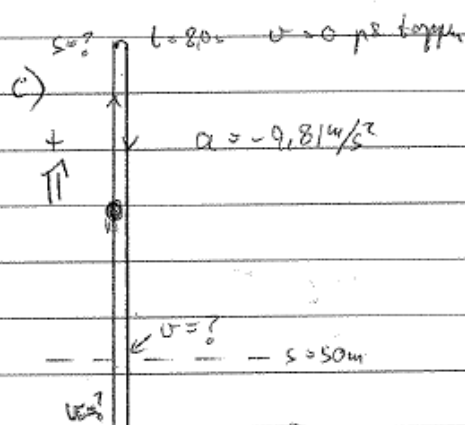 s=? t=8,0s v=0 på toppen
c)
+
a = -9,81 m/s²
v=?
s=50m